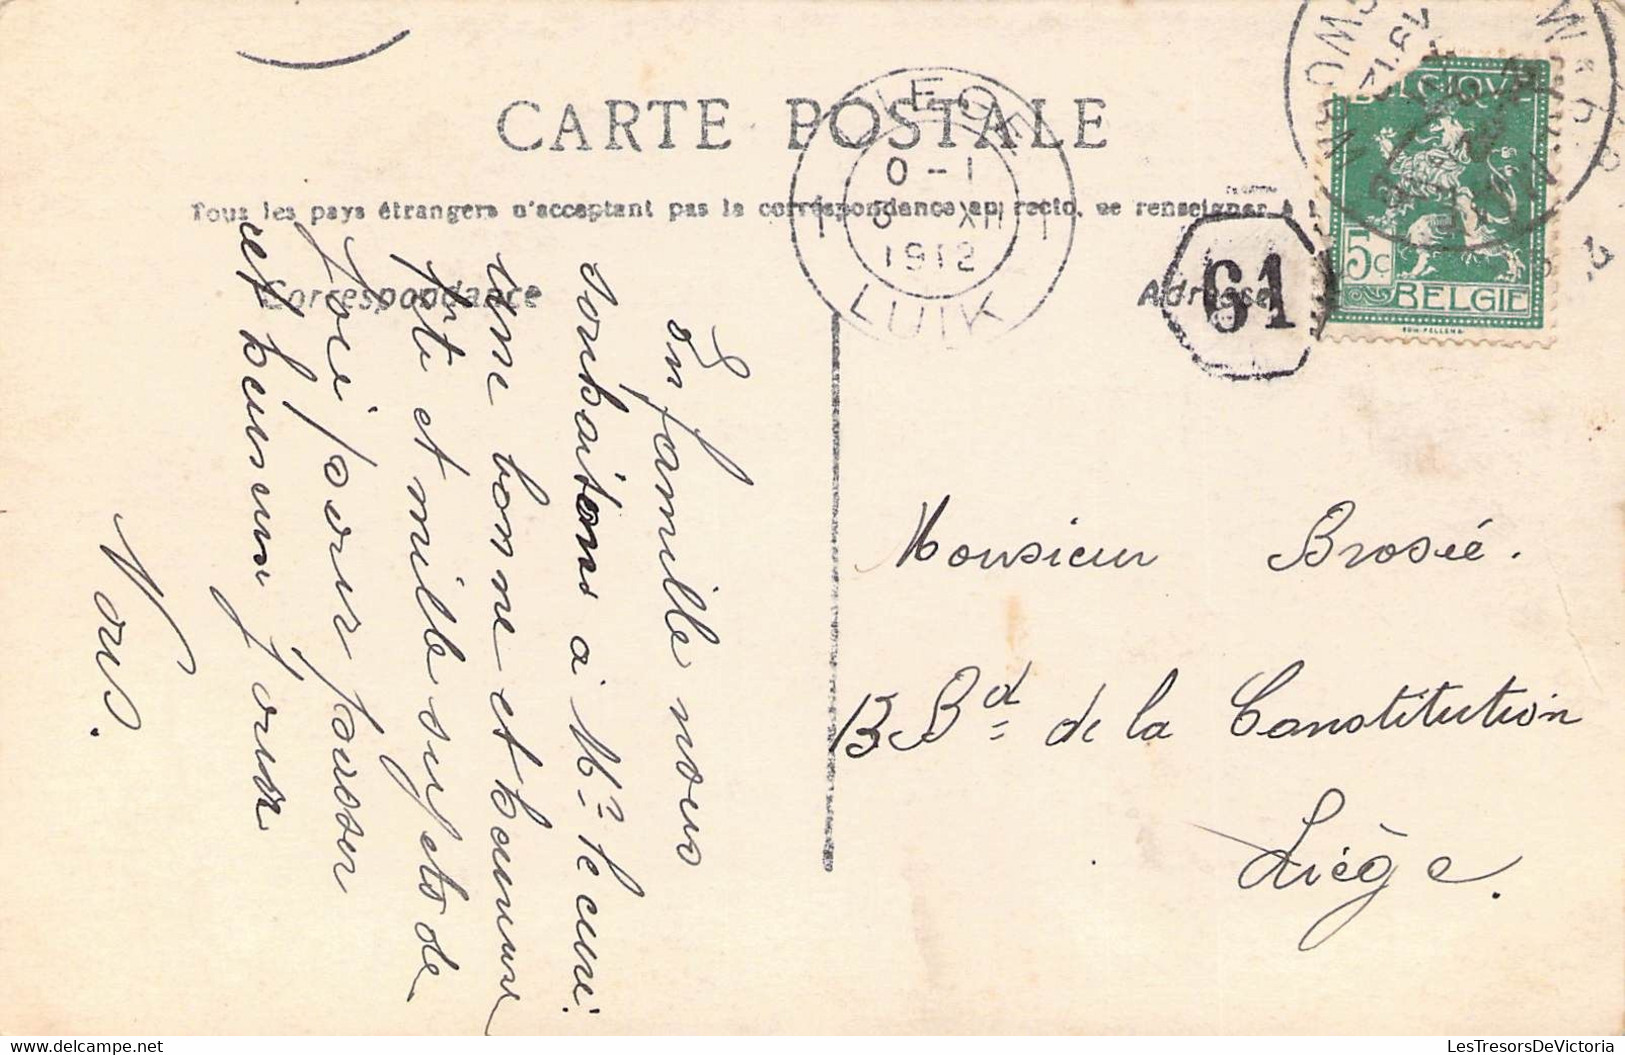 CARTE POSTALE
Tous les pays étrangers n'acceptant pas la correspondance au recto, se renseigner à
Correspondance
Adresse
LIEGE
0-1
XII
1912
LUIK
61
BELGIQUE
5c
BELGIE
En famille nous
souhaitons à Mr le curé
une bonne et heureuse
fête et mille sujets de
joei pour passer
cet heureux jour
Nous.
Monsieur Brosée.
13 Bd de la Constitution
Liège.
LesTresorsDeVictoria www.delcampe.net